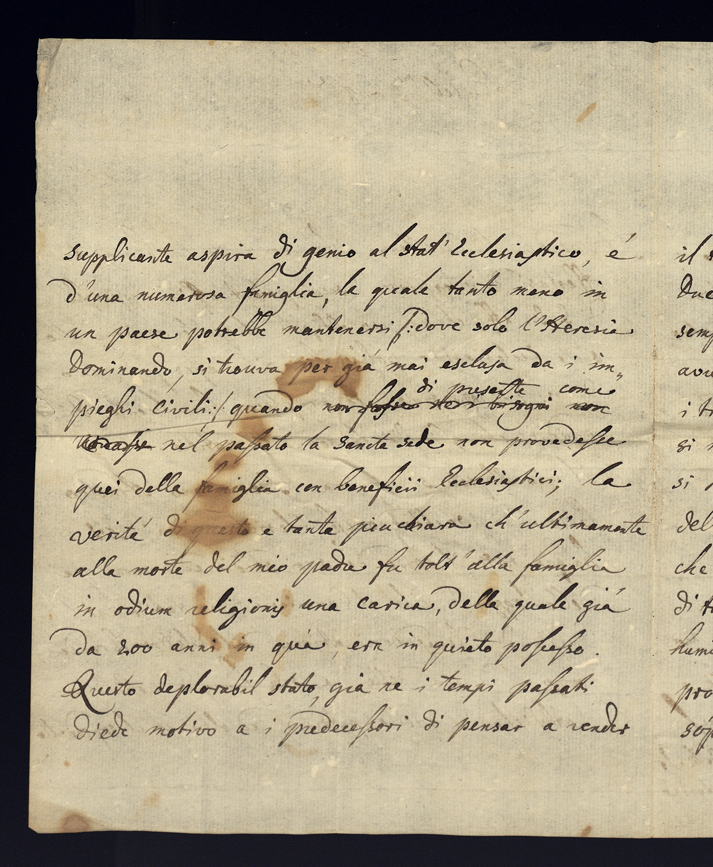 supplicante aspira di genio al stat' Ecclesiastico, é
d'una numerosa famiglia, la quale tanto meno in
un paese potrebbe mantenersi /: dove solo l'Heresia
Dominando, si trouva per giá mai esclusa da i im„
di presente come
pieghi civili :/ quando non fosse nei bisogni non
nel passato la sancta sede non provedesse
quei della famiglia con beneficii Ecclesiastici; la
veritá di questo e tanta piu chiara ch'ultimamente
alla morte del mio padre fu tolt' alla famiglia
in odium religionis una carica, della quale giá
da 200 anni in quà, era in quieto possesso.
Questo deplorabil stato, già ne i tempi passati
diede motivo a i predecessori di pensar a render
il
Due
sem
avu
i t
si
si
del
che
di
humi
pro
sop